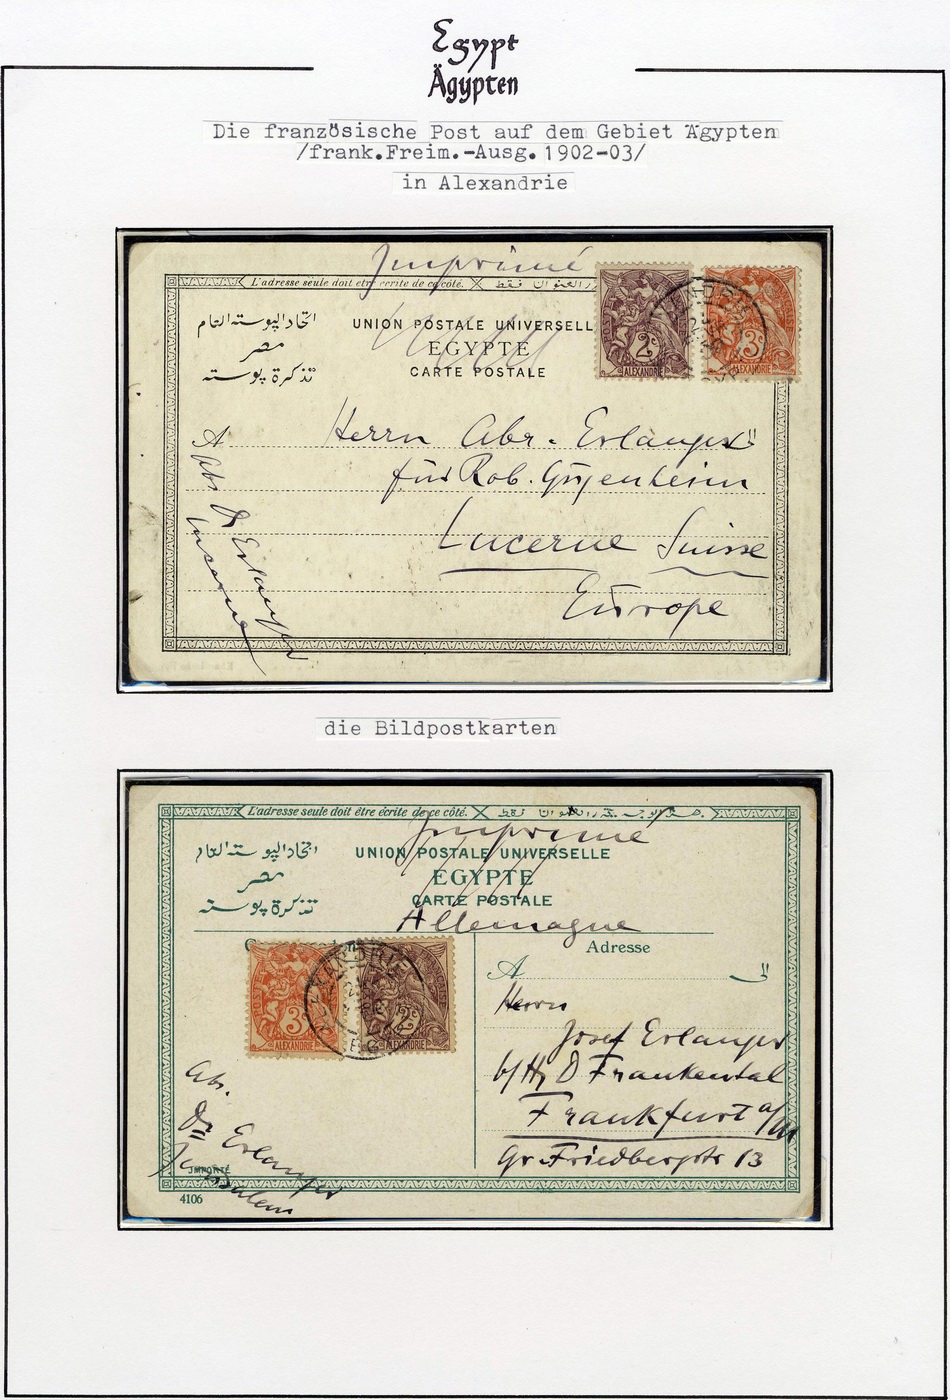 Egypt
Ägypten
Die französische Post auf dem Gebiet Ägypten
/frank.Freim.-Ausg. 1902-03/
in Alexandrie
Imprimé
L'adresse seule doit être écrite de ce côté.
اتحاد البوسته العام
UNION POSTALE UNIVERSELL
مصر
EGYPTE
تذكرة بوسته
CARTE POSTALE
2
ALEXANDRIE
3
ALEXANDRIE
A
Herrn Abr. Erlanger
الى
für Rob. Gugenheim
Lucerne Suisse
Europe
Abs Dr Erlanger
die Bildpostkarten
L'adresse seule doit être écrite de ce côté.
Imprimé
اتحاد البوسته العام
UNION POSTALE UNIVERSELLE
مصر
EGYPTE
تذكرة بوسته
CARTE POSTALE
Allemagne
Adresse
3
ALEXANDRIE
2
ALEXANDRIE
ALEXANDRIE
A
الى
Herrn
Josef Erlanger
b/H. D Frankental
Frankfurt a/M
Gr. Friedbergstr 13
Abs.
Dr Erlanger
Jerusalem
IMPORTÉ
4106